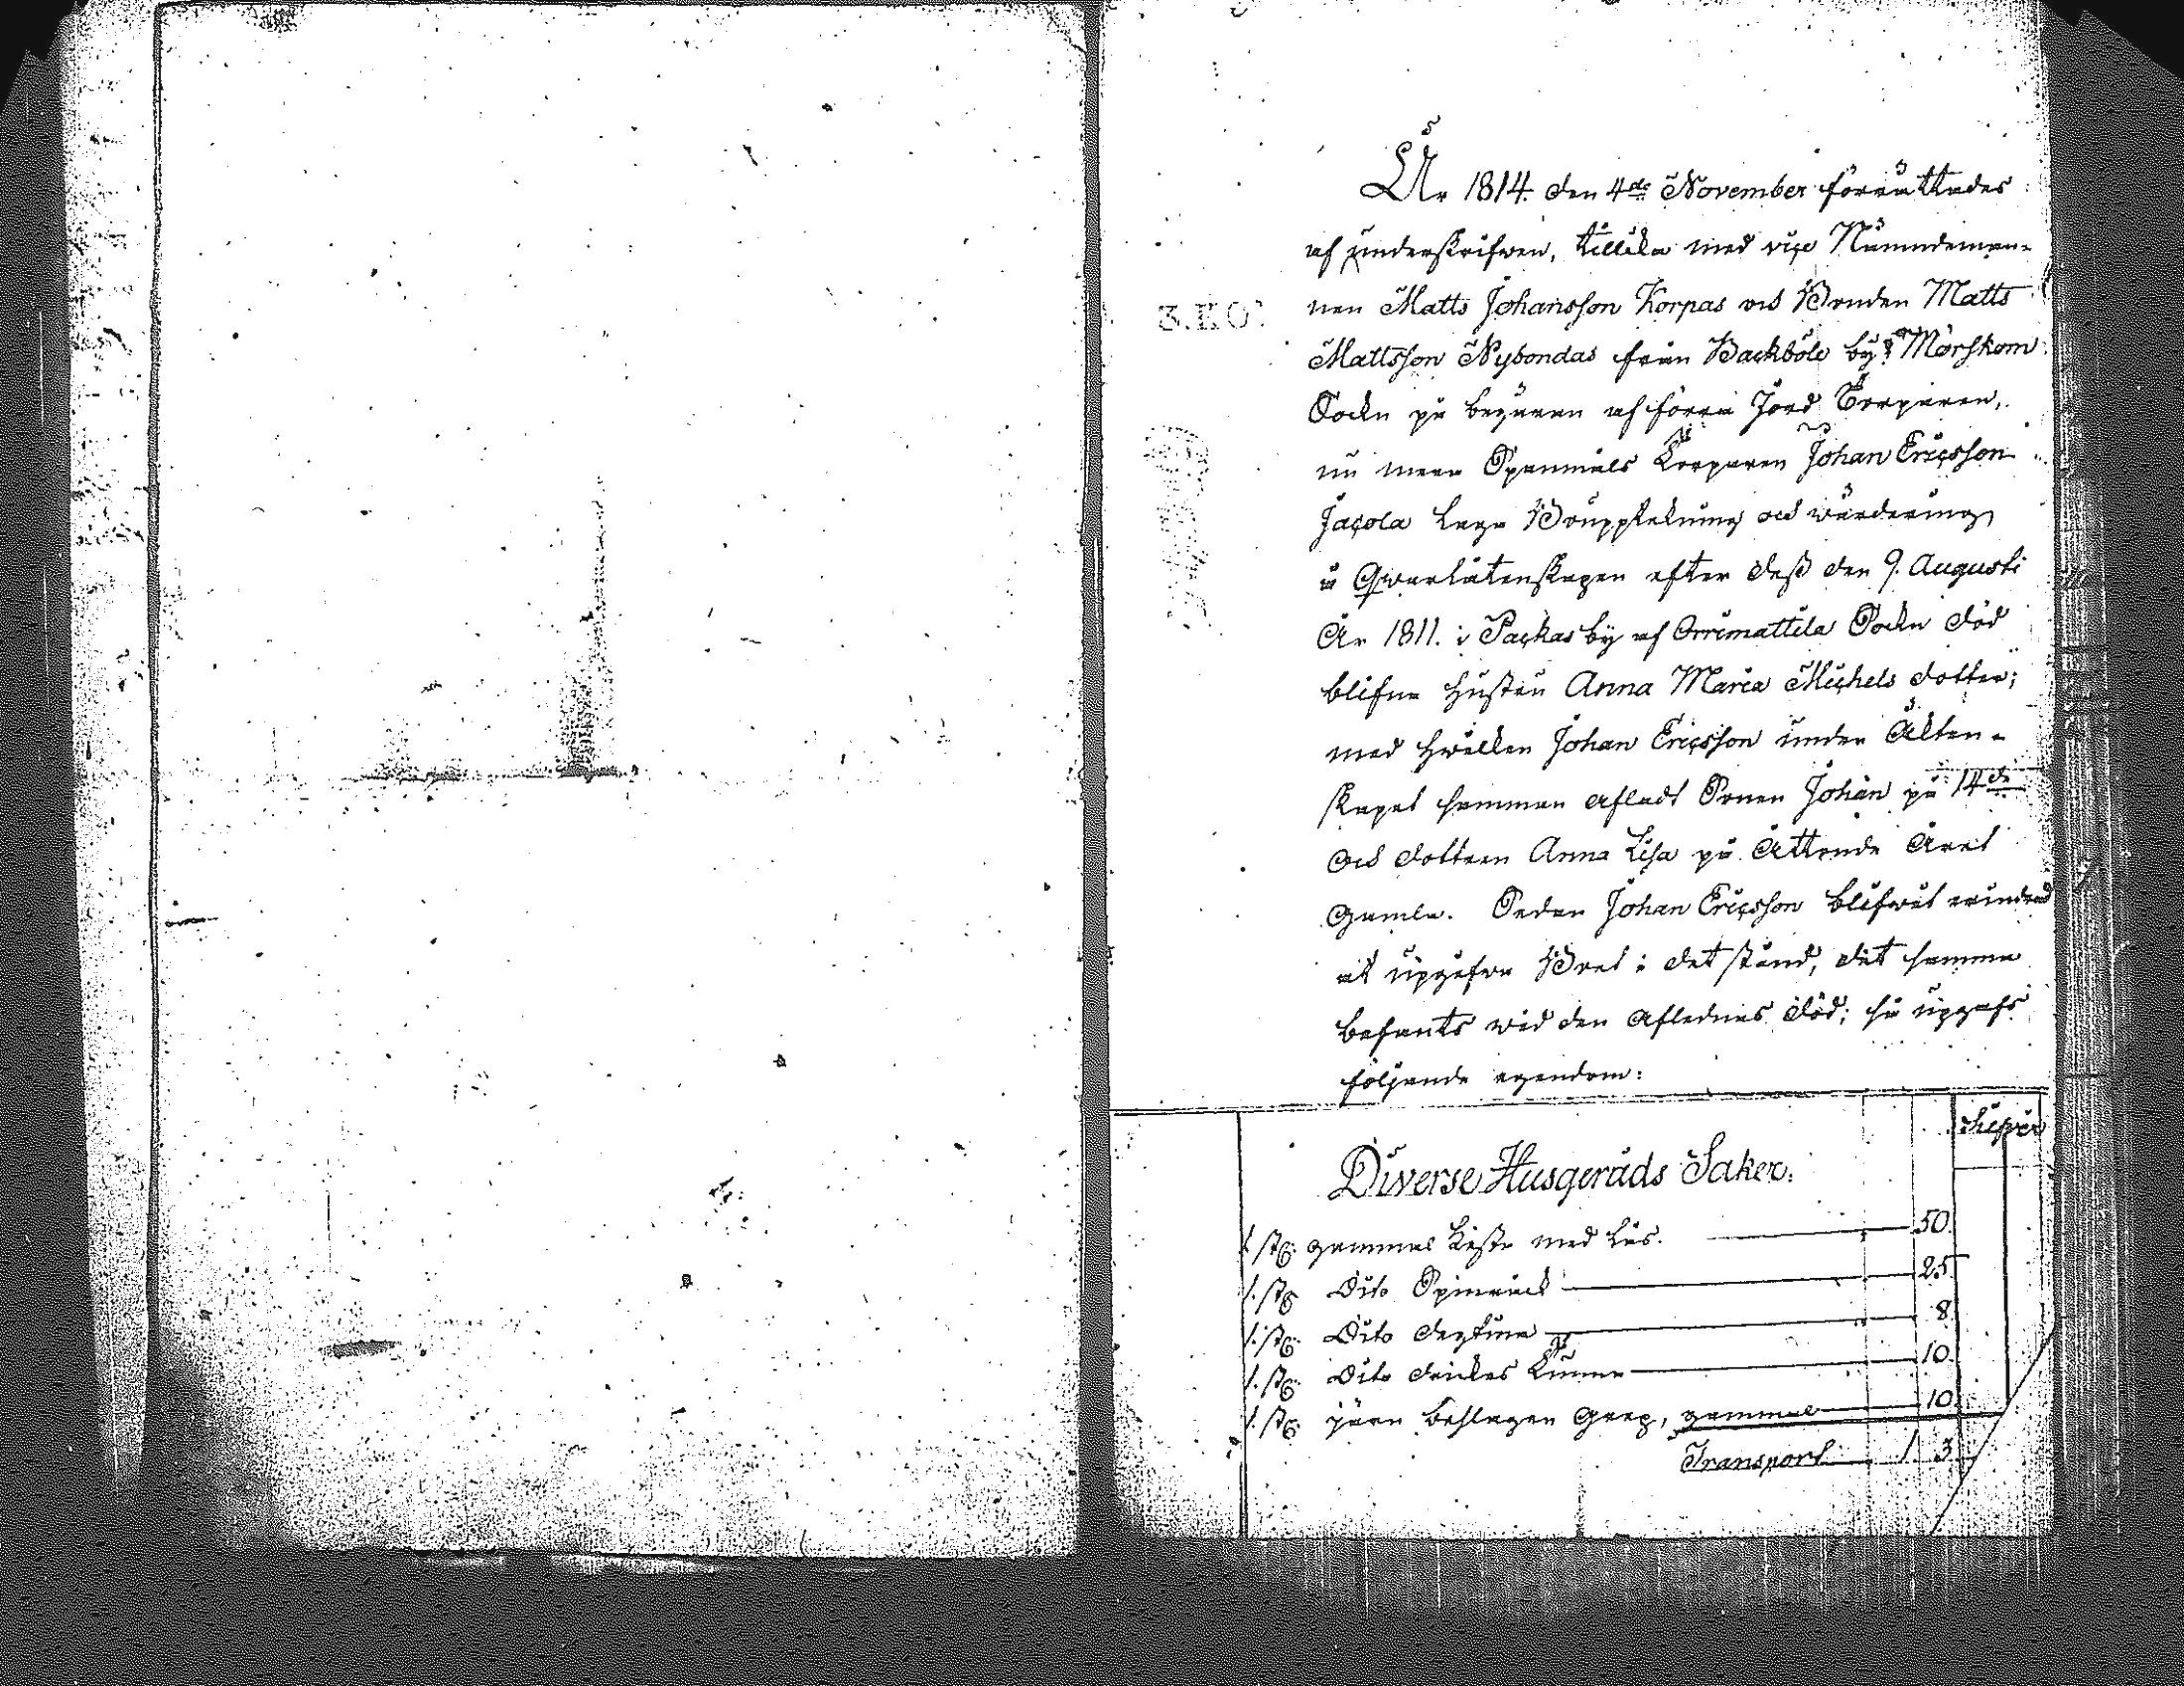 År 1814. den 4de November förrättades
af underskrifven, tillika med vice Nämndeman-
nen Matts Johansson Korpas och Bonden Matts
Mattsson Nybondas från Backböle by i Mörskom
Sockn på begäran af förra Jord Torparen,
nu mera Spanmåls Torparen Johan Ericsson
Jacola laga Bouppteckning och wärdering
å Qwarlåtenskapen efter dess den 9. Augusti
År 1811. i Packas by af Orrimattila Sockn död
blifna hustru Anna Maria Michels dotter;
med hwilken Johan Ericsson under Äkten-
skapet samman afladt Sonen Johan på 14de
och dottren Anna Lisa på Åttonde Året
Gamla. Sedan Johan Ericsson blifwit erindrad
at upgifwa Boet i det stånd, det samma
befants wid den Aflednas död; så upgafs
följande egendom:
Diverse Husgeråds Saker.
1 st: gammal Kista med lås. 50.
1. st: Dito Spinråck 25
1. st: Dito degtina 8
1. st: Dito drickes Kanna 10.
1. st: järn beslagen Grep, gammal 10
Transport 1. 3.